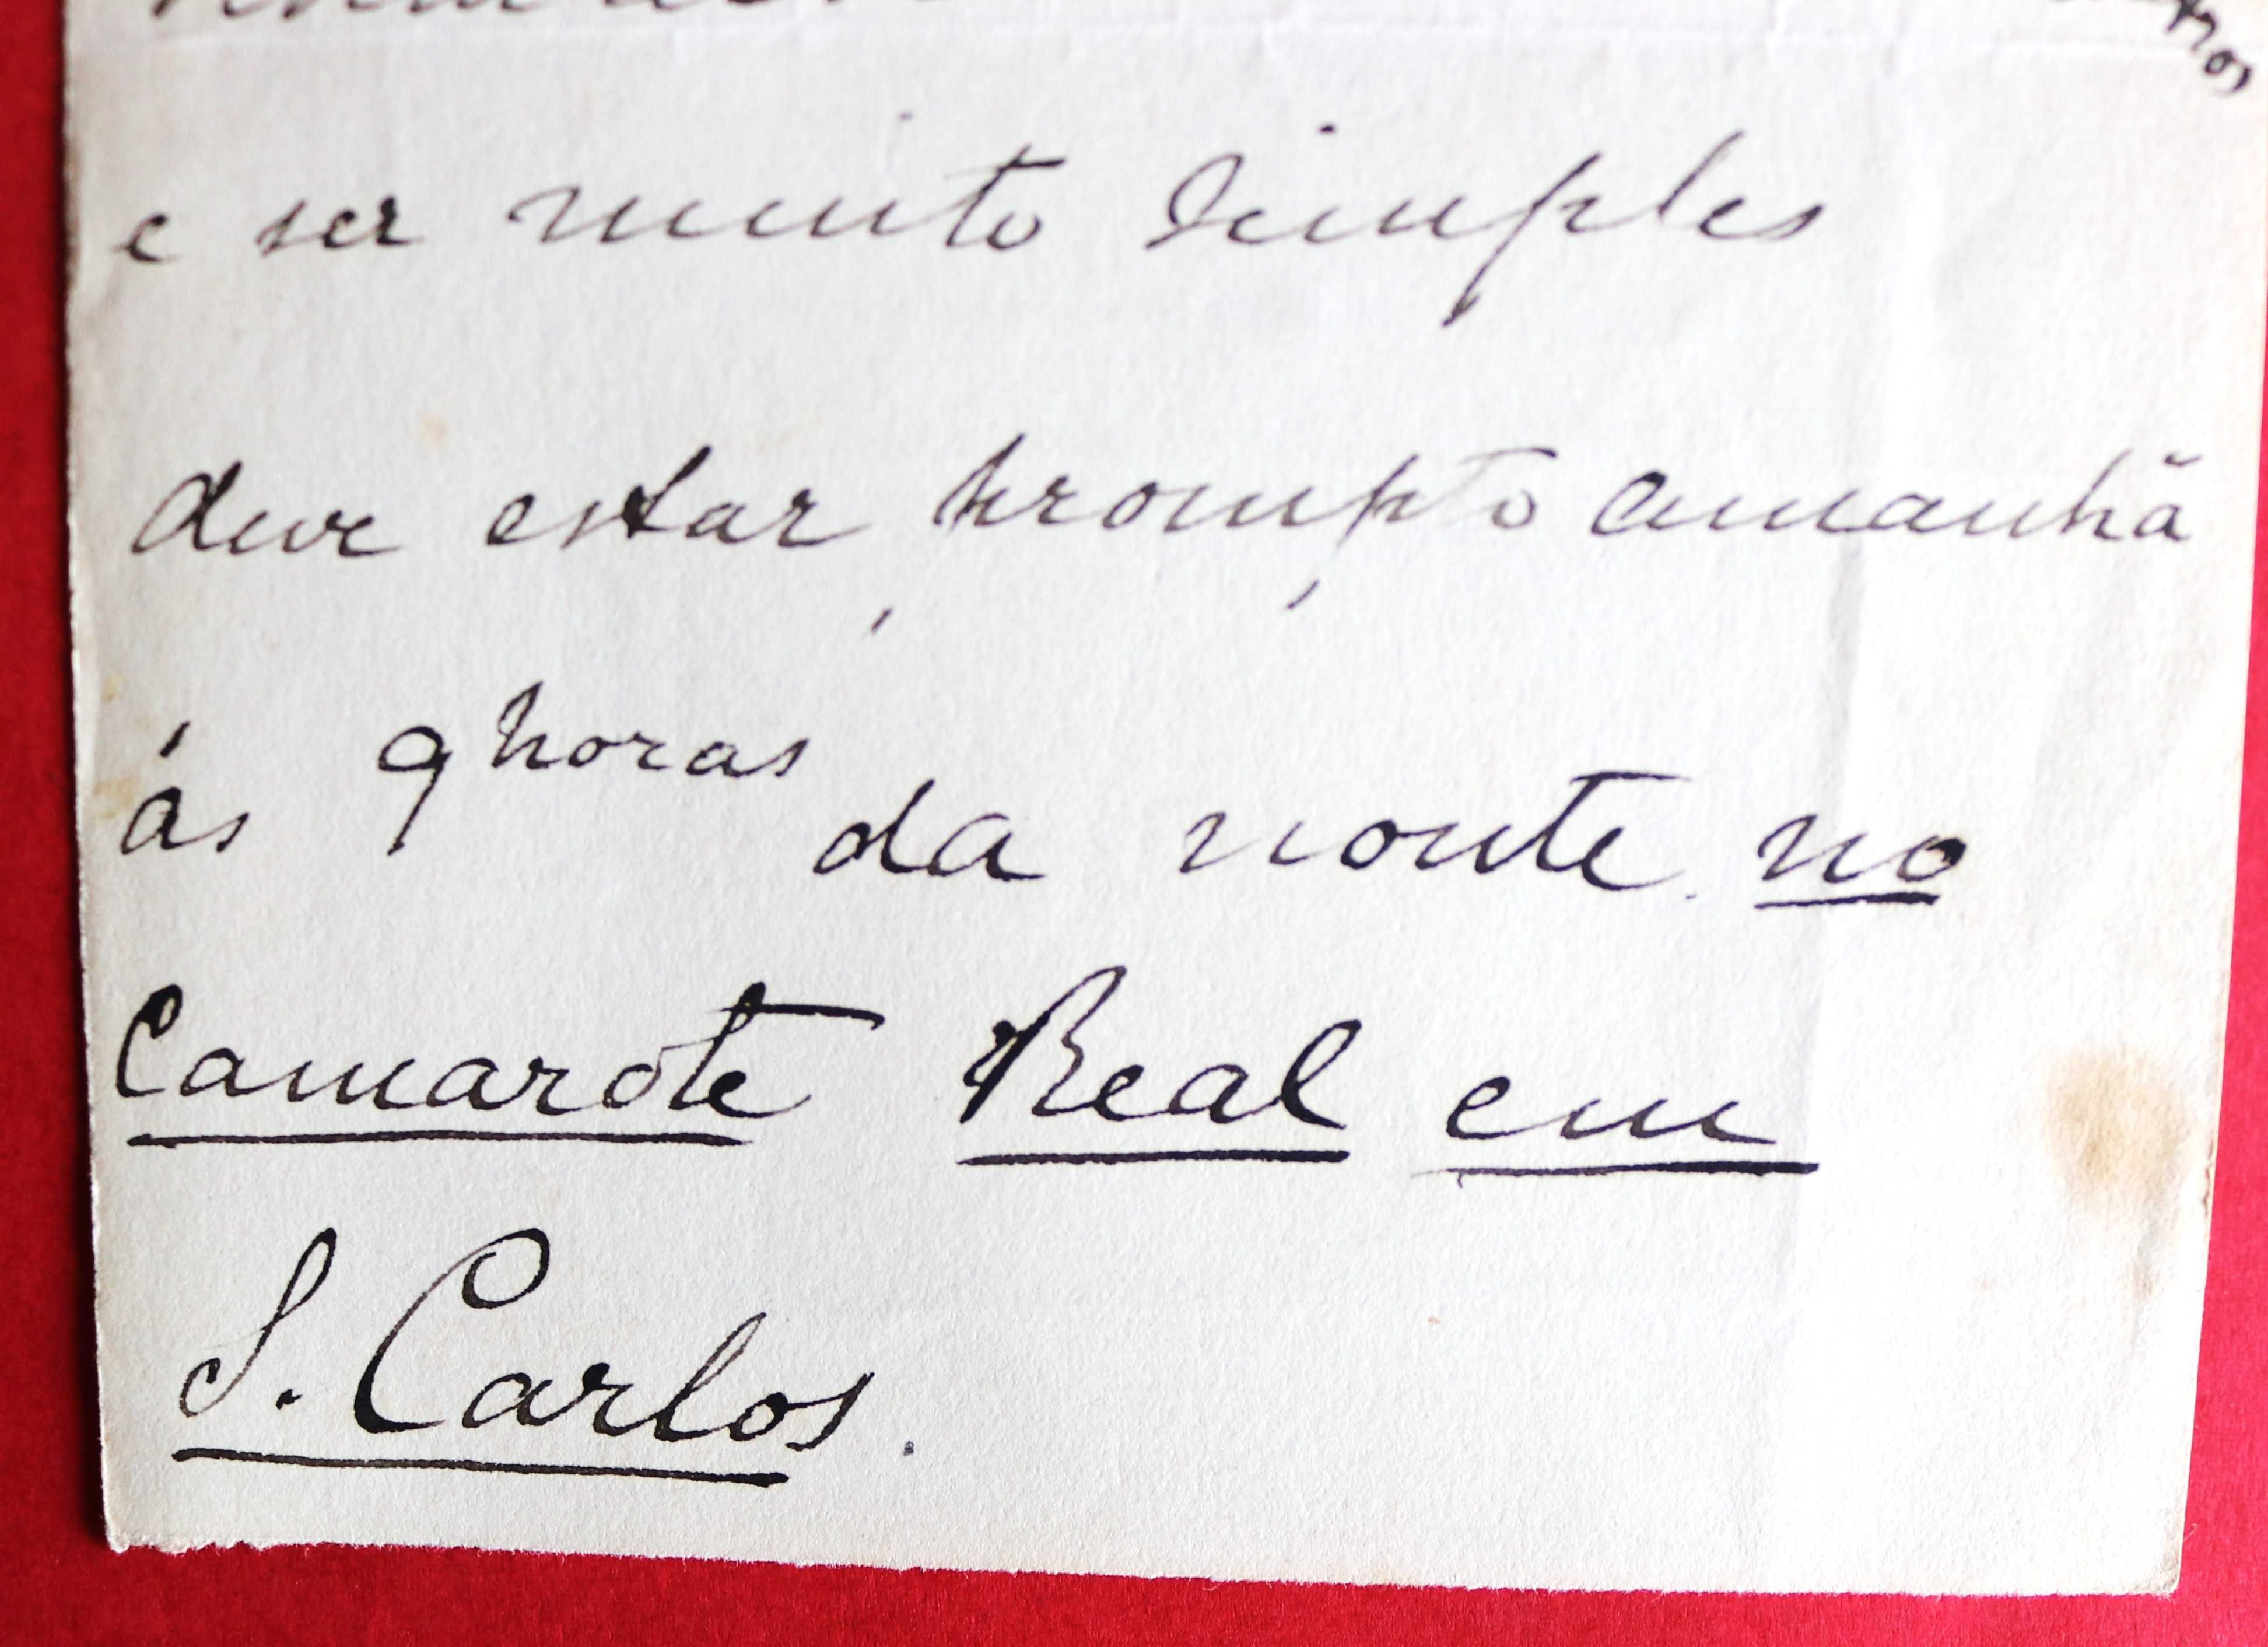 e ser muito simples
deve estar prompto amanhã
ás 9 horas da noute no
Camarote Real em
S. Carlos.